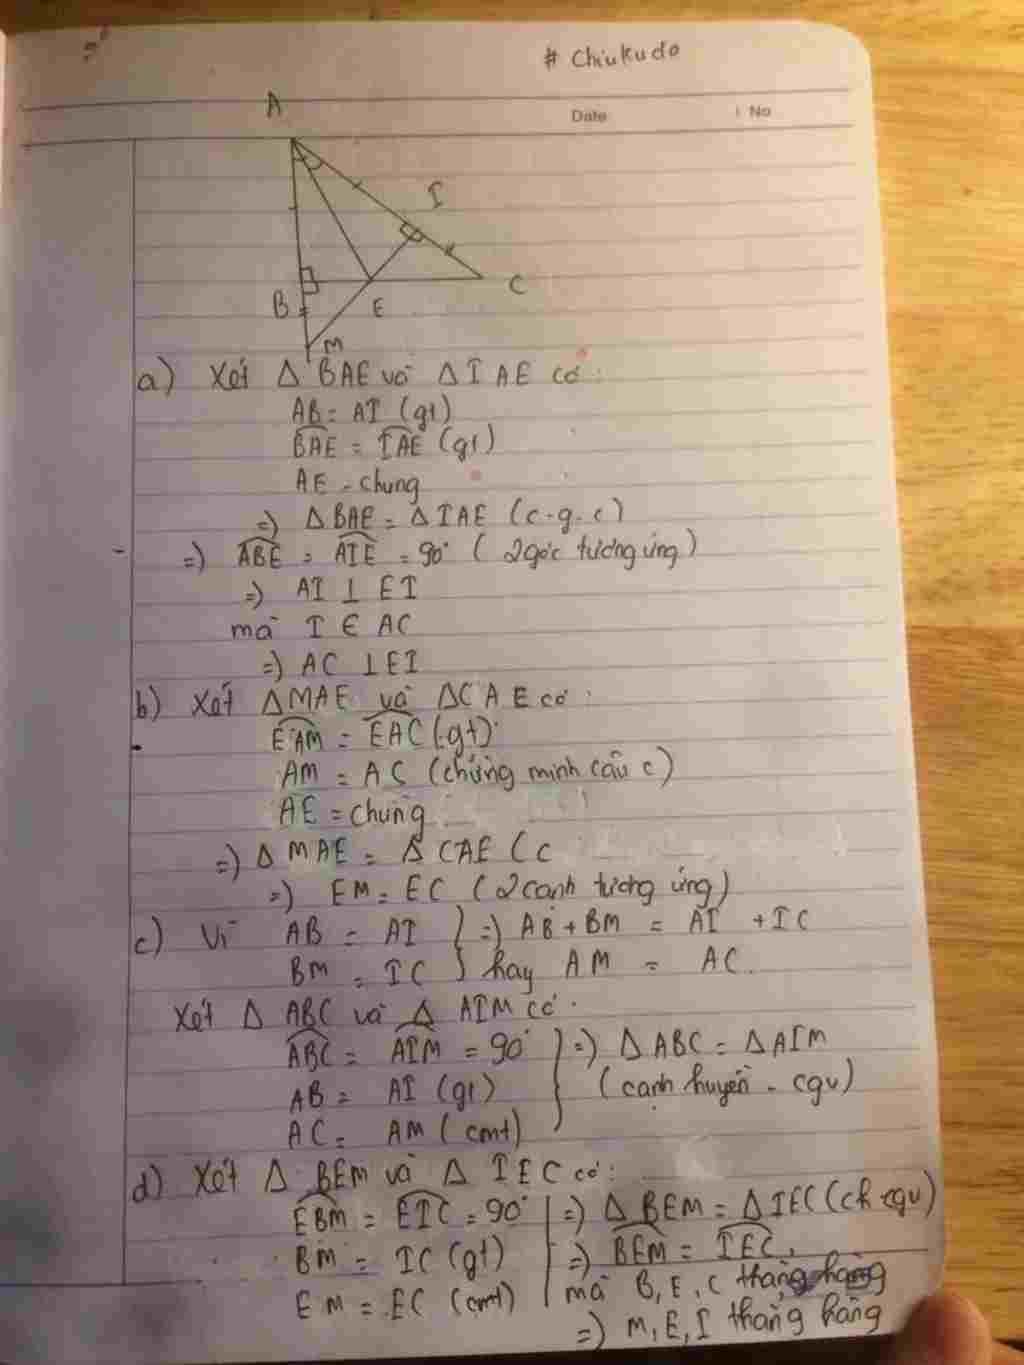 # Chiukudo
Date No
A
I
B E C
M
a) Xét Δ BAE và Δ IAE có:
AB = AI (gt)
BAE = IAE (gt)
AE - chung
=) Δ BAE = Δ IAE (c-g-c)
=) ABE = AIE = 90° (2 góc tương ứng)
=) AI ⊥ EI
mà I ∈ AC
=) AC ⊥ EI
b) Xét ΔMAE và ΔCAE có:
EAM = EAC (gt)
AM = AC (chứng minh câu c)
AE = chung
=) Δ MAE = Δ CAE (c
=) EM = EC (2 cạnh tương ứng)
c) Vì AB = AI } =) AB + BM = AI + IC
BM = IC } hay AM = AC.
Xét Δ ABC và Δ AIM có:
ABC = AIM = 90° } =) Δ ABC = Δ AIM
AB = AI (gt) (cạnh huyền - cgv)
AC = AM (cmt)
d) Xét Δ BEM và Δ IEC có:
EBM = EIC = 90° | =) Δ BEM = Δ IEC (ch cgv)
BM = IC (gt) | =) BEM = IEC,
EM = EC (cmt) | mà B, E, C thẳng hàng
=) M, E, I thẳng hàng